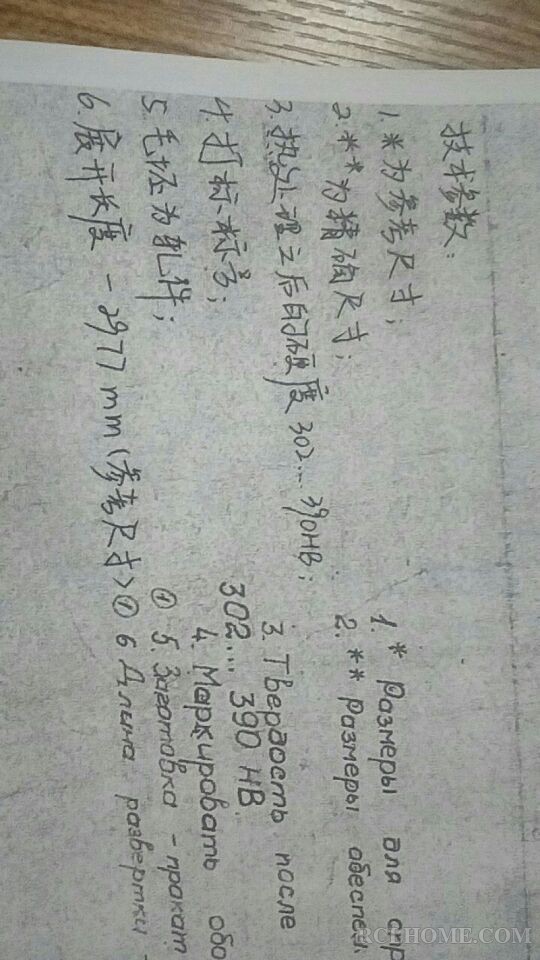 技术参数:
1. *为参考尺寸;
2. **为精确尺寸;
3. 热处理之后的硬度 302...390HB;
4. 打标:标号;
5. 毛坯为轧件;
6. 展开长度 - 2977mm (参考尺寸)
1. * Размеры для спр
2. ** Размеры обеспеч.
3. Твердость после
302... 390 НВ.
4. Маркировать обо
① 5. Заготовка - прокат
① 6 Длина развертки -
RCTHOME.COM